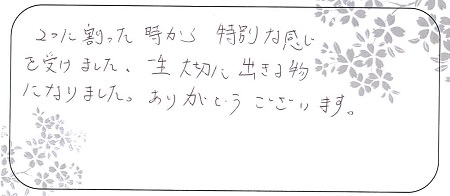 2つに割った時から 特別な感じ
を受けました、一生大切に出きる物
になりました。ありがとうございます。